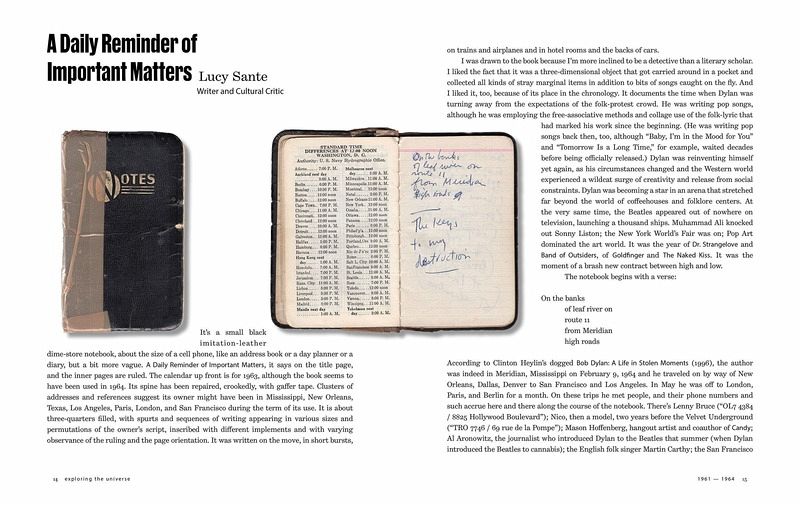 A Daily Reminder of
Important Matters Lucy Sante
Writer and Cultural Critic
NOTES
STANDARD TIME
DIFFERENCES AT 12:00 NOON
WASHINGTON, D. C.
Authority: U. S. Navy Hydrographic Office.
On the banks
of leaf river on
route 11
from Meridian
high roads
The Keys
to my
destruction
It's a small black
imitation-leather
dime-store notebook, about the size of a cell phone, like an address book or a day planner or a
diary, but a bit more vague. A Daily Reminder of Important Matters, it says on the title page,
and the inner pages are ruled. The calendar up front is for 1963, although the book seems to
have been used in 1964. Its spine has been repaired, crookedly, with gaffer tape. Clusters of
addresses and references suggest its owner might have been in Mississippi, New Orleans,
Texas, Los Angeles, Paris, London, and San Francisco during the term of its use. It is about
three-quarters filled, with spurts and sequences of writing appearing in various sizes and
permutations of the owner's script, inscribed with different implements and with varying
observance of the ruling and the page orientation. It was written on the move, in short bursts,
14 exploring the universe
on trains and airplanes and in hotel rooms and the backs of cars.
I was drawn to the book because I'm more inclined to be a detective than a literary scholar.
I liked the fact that it was a three-dimensional object that got carried around in a pocket and
collected all kinds of stray marginal items in addition to bits of songs caught on the fly. And
I liked it, too, because of its place in the chronology. It documents the time when Dylan was
turning away from the expectations of the folk-protest crowd. He was writing pop songs,
although he was employing the free-associative methods and collage use of the folk-lyric that
had marked his work since the beginning. (He was writing pop
songs back then, too, although “Baby, I'm in the Mood for You”
and “Tomorrow Is a Long Time,” for example, waited decades
before being officially released.) Dylan was reinventing himself
yet again, as his circumstances changed and the Western world
experienced a wildcat surge of creativity and release from social
constraints. Dylan was becoming a star in an arena that stretched
far beyond the world of coffeehouses and folklore centers. At
the very same time, the Beatles appeared out of nowhere on
television, launching a thousand ships. Muhammad Ali knocked
out Sonny Liston; the New York World's Fair was on; Pop Art
dominated the art world. It was the year of Dr. Strangelove and
Band of Outsiders, of Goldfinger and The Naked Kiss. It was the
moment of a brash new contract between high and low.
The notebook begins with a verse:
On the banks
of leaf river on
route 11
from Meridian
high roads
According to Clinton Heylin's dogged Bob Dylan: A Life in Stolen Moments (1996), the author
was indeed in Meridian, Mississippi on February 9, 1964 and he traveled on by way of New
Orleans, Dallas, Denver to San Francisco and Los Angeles. In May he was off to London,
Paris, and Berlin for a month. On these trips he met people, and their phone numbers and
such accrue here and there along the course of the notebook. There's Lenny Bruce (“OL7 4384
/ 8825 Hollywood Boulevard”); Nico, then a model, two years before the Velvet Underground
(“TRO 7746 / 69 rue de la Pompe”); Mason Hoffenberg, hangout artist and coauthor of Candy;
Al Aronowitz, the journalist who introduced Dylan to the Beatles that summer (when Dylan
introduced the Beatles to cannabis); the English folk singer Martin Carthy; the San Francisco
1961 — 1964 15